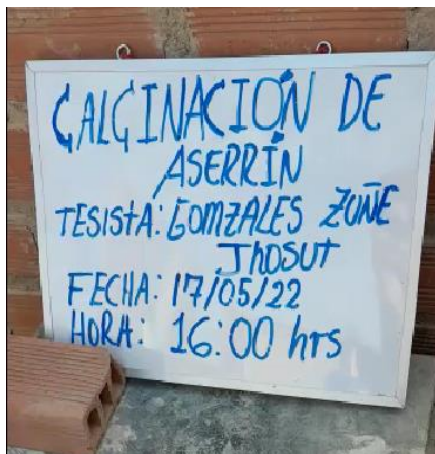 CALCINACIÓN DE
ASERRÍN
TESISTA: GOMZALES ZOÑE
JhOSUT
FECHA: 17/05/22
HORA: 16:00 hrs